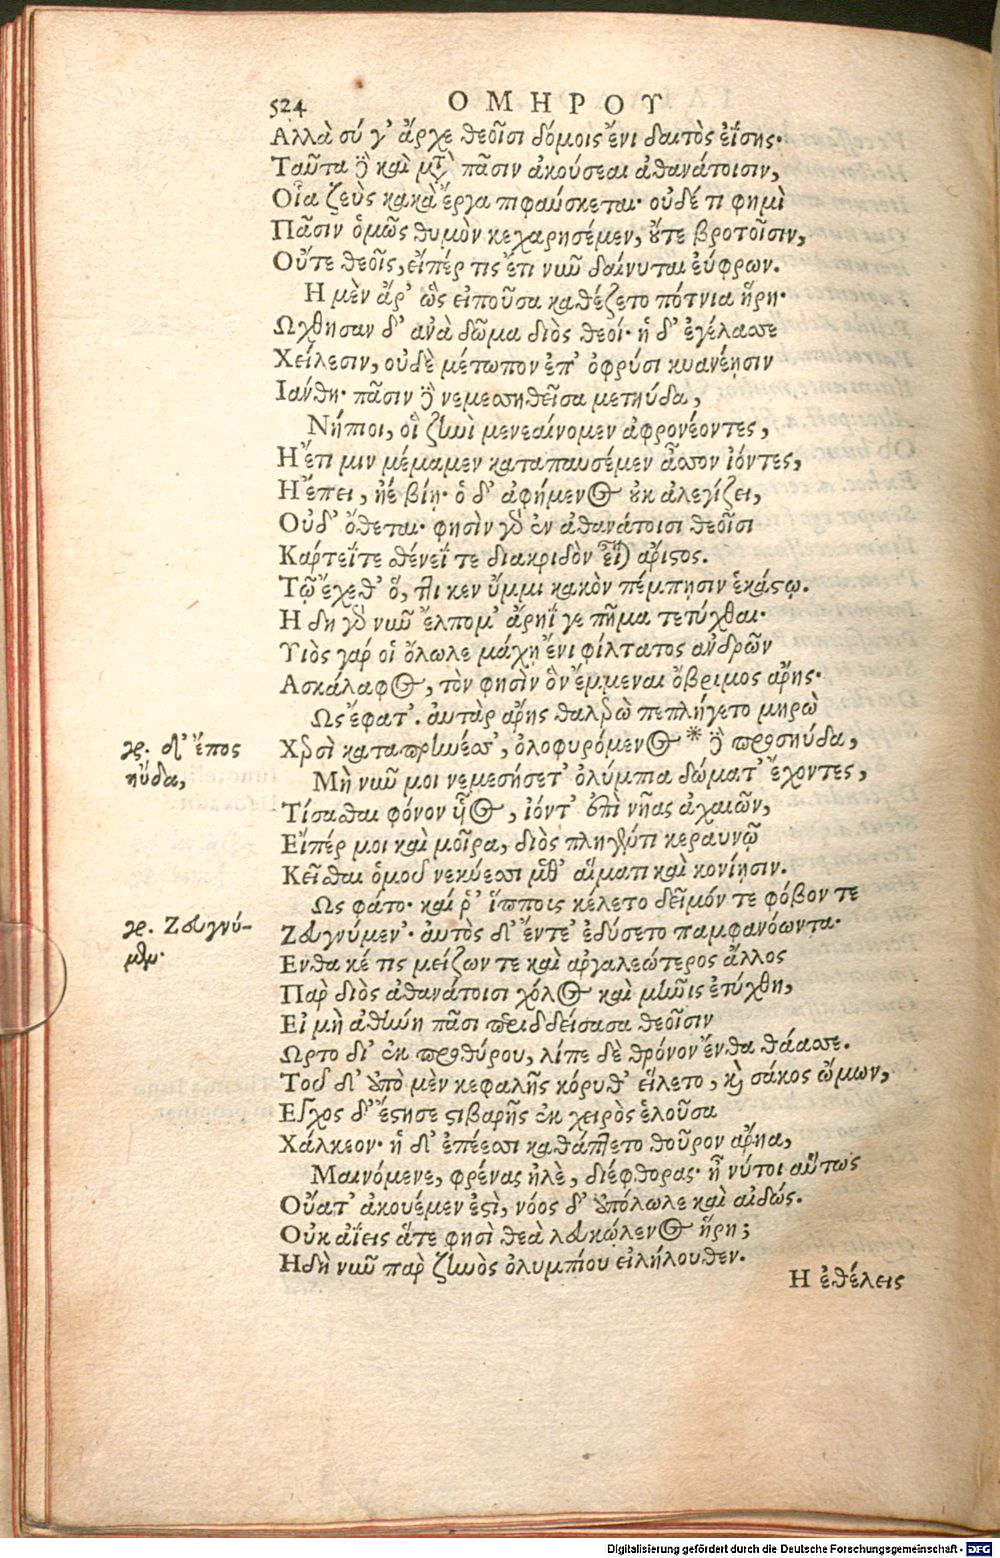 524 ΟΜΗΡΟΥ
Αλλὰ σύ γ' ἄρχε θεοῖσι δόμοις ἔνι δαιτὸς ἐΐσης·
Ταῦτα δὲ καὶ μετὰ πᾶσιν ἀκούσεαι ἀθανάτοισιν,
Οἷα ζεὺς κακὰ ἔργα πιφαύσκεται· οὐδέ τι φημὶ
Πᾶσιν ὁμῶς θυμὸν κεχαρησέμεν, οὔτε βροτοῖσιν,
Οὔτε θεοῖς, εἴπέρ τις ἔτι νῦν δαίνυται εὔφρων.
Η μὲν ἄρ' ὣς εἰποῦσα καθέζετο πότνια ἥρη·
Ωχθησαν δ' ἀνὰ δῶμα διὸς θεοί· ἡ δ' ἐγέλασσε
Χείλεσιν, οὐδὲ μέτωπον ἐπ' ὀφρύσι κυανέῃσιν
Ιάνθη· πᾶσιν δὲ νεμεσσηθεῖσα μετηύδα,
Νήπιοι, οἳ ζηνὶ μενεαίνομεν ἀφρονέοντες,
Η ἔτι μιν μέμαμεν καταπαυσέμεν ἆσσον ἰόντες,
Η ἔπει, ἠὲ βίῃ· ὁ δ' ἀφήμενος οὐκ ἀλεγίζει,
Οὐδ' ὄθεται· φησὶν γὰρ ἐν ἀθανάτοισι θεοῖσι
Κάρτεΐτε θένεΐ τε διακριδὸν εἶναι ἄριστος.
Τῷ ἔχεθ' ὅ, ττι κεν ὔμμι κακὸν πέμπῃσιν ἑκάστῳ.
Η δη γὰρ νῦν ἔλπομ' ἄρηΐ γε πῆμα τετύχθαι·
Υιὸς γάρ οἱ ὄλωλε μάχῃ ἔνι φίλτατος ἀνδρῶν
Ασκάλαφος, τὸν φησὶν ὃν ἔμμεναι ὄβριμος ἄρης·
Ως ἔφατ'. αὐτὰρ ἄρης θαλερὼ πεπλήγετο μηρὼ
γρ. δ' ἔπος ηὔδα,
Χερσὶ καταπρηνέσσ', ὀλοφυρόμενος * δὲ προσηύδα,
Μὴ νῦν μοι νεμεσήσετ' ὀλύμπια δώματ' ἔχοντες,
Τίσασθαι φόνον υἷος, ἰόντ' ἐπὶ νῆας ἀχαιῶν,
Εἴπέρ μοι καὶ μοῖρα, διὸς πληγέντι κεραυνῷ
Κεῖσθαι ὁμοῦ νεκύεσσι μεθ' αἵματι καὶ κονίῃσιν.
Ως φάτο· καί ῥ' ἵπποις κέλετο δεῖμόν τε φόβον τε
γρ. Ζευγνύ-
μεν·
Ζευγνύμεν'· αὐτὸς δ' ἔντε' ἐδύσετο παμφανόωντα·
Ενθα κέ τις μείζων τε καὶ ἀργαλεώτερος ἄλλος
Παρ διὸς ἀθανάτοισι χόλος καὶ μῆνις ἐτύχθη,
Εἰ μὴ ἀθήνη πᾶσι περιδδείσασα θεοῖσιν
Ωρτο δ' ἐκ προθύρου, λίπε δὲ θρόνον ἔνθα θάασσε.
Τοῦ δ' ἀπὸ μὲν κεφαλῆς κόρυθ' εἵλετο, καὶ σάκος ὤμων,
Εγχος δ' ἔστησε στιβαρῆς ἐκ χειρὸς ἑλοῦσα
Χάλκεον· ἡ δ' ἐπέεσσι καθάπτετο θοῦρον ἄρηα,
Μαινόμενε, φρένας ἠλὲ, διέφθορας· ἦ νύτοι αὔτως
Οὔατ' ἀκουέμεν ἐστὶ, νόος δ' ἀπόλωλε καὶ αἰδώς.
Οὐκ ἀΐεις ἅτε φησὶ θεὰ λευκώλενος ἥρη;
Η δὴ νῦν παρ ζηνὸς ὀλυμπίου εἰλήλουθεν.
Η ἐθέλεις
Digitalisierung gefördert durch die Deutsche Forschungsgemeinschaft - DFG